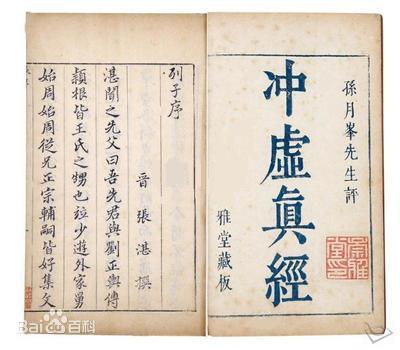 孫月峯先生評
冲虛眞經
雅堂藏板
列子序
晉 張湛 撰
湛聞之先父曰吾先君與劉正輿傅
穎根皆王氏之甥也並少遊外家舅
始周始周從兄正宗輔嗣皆好集文
Bai百科